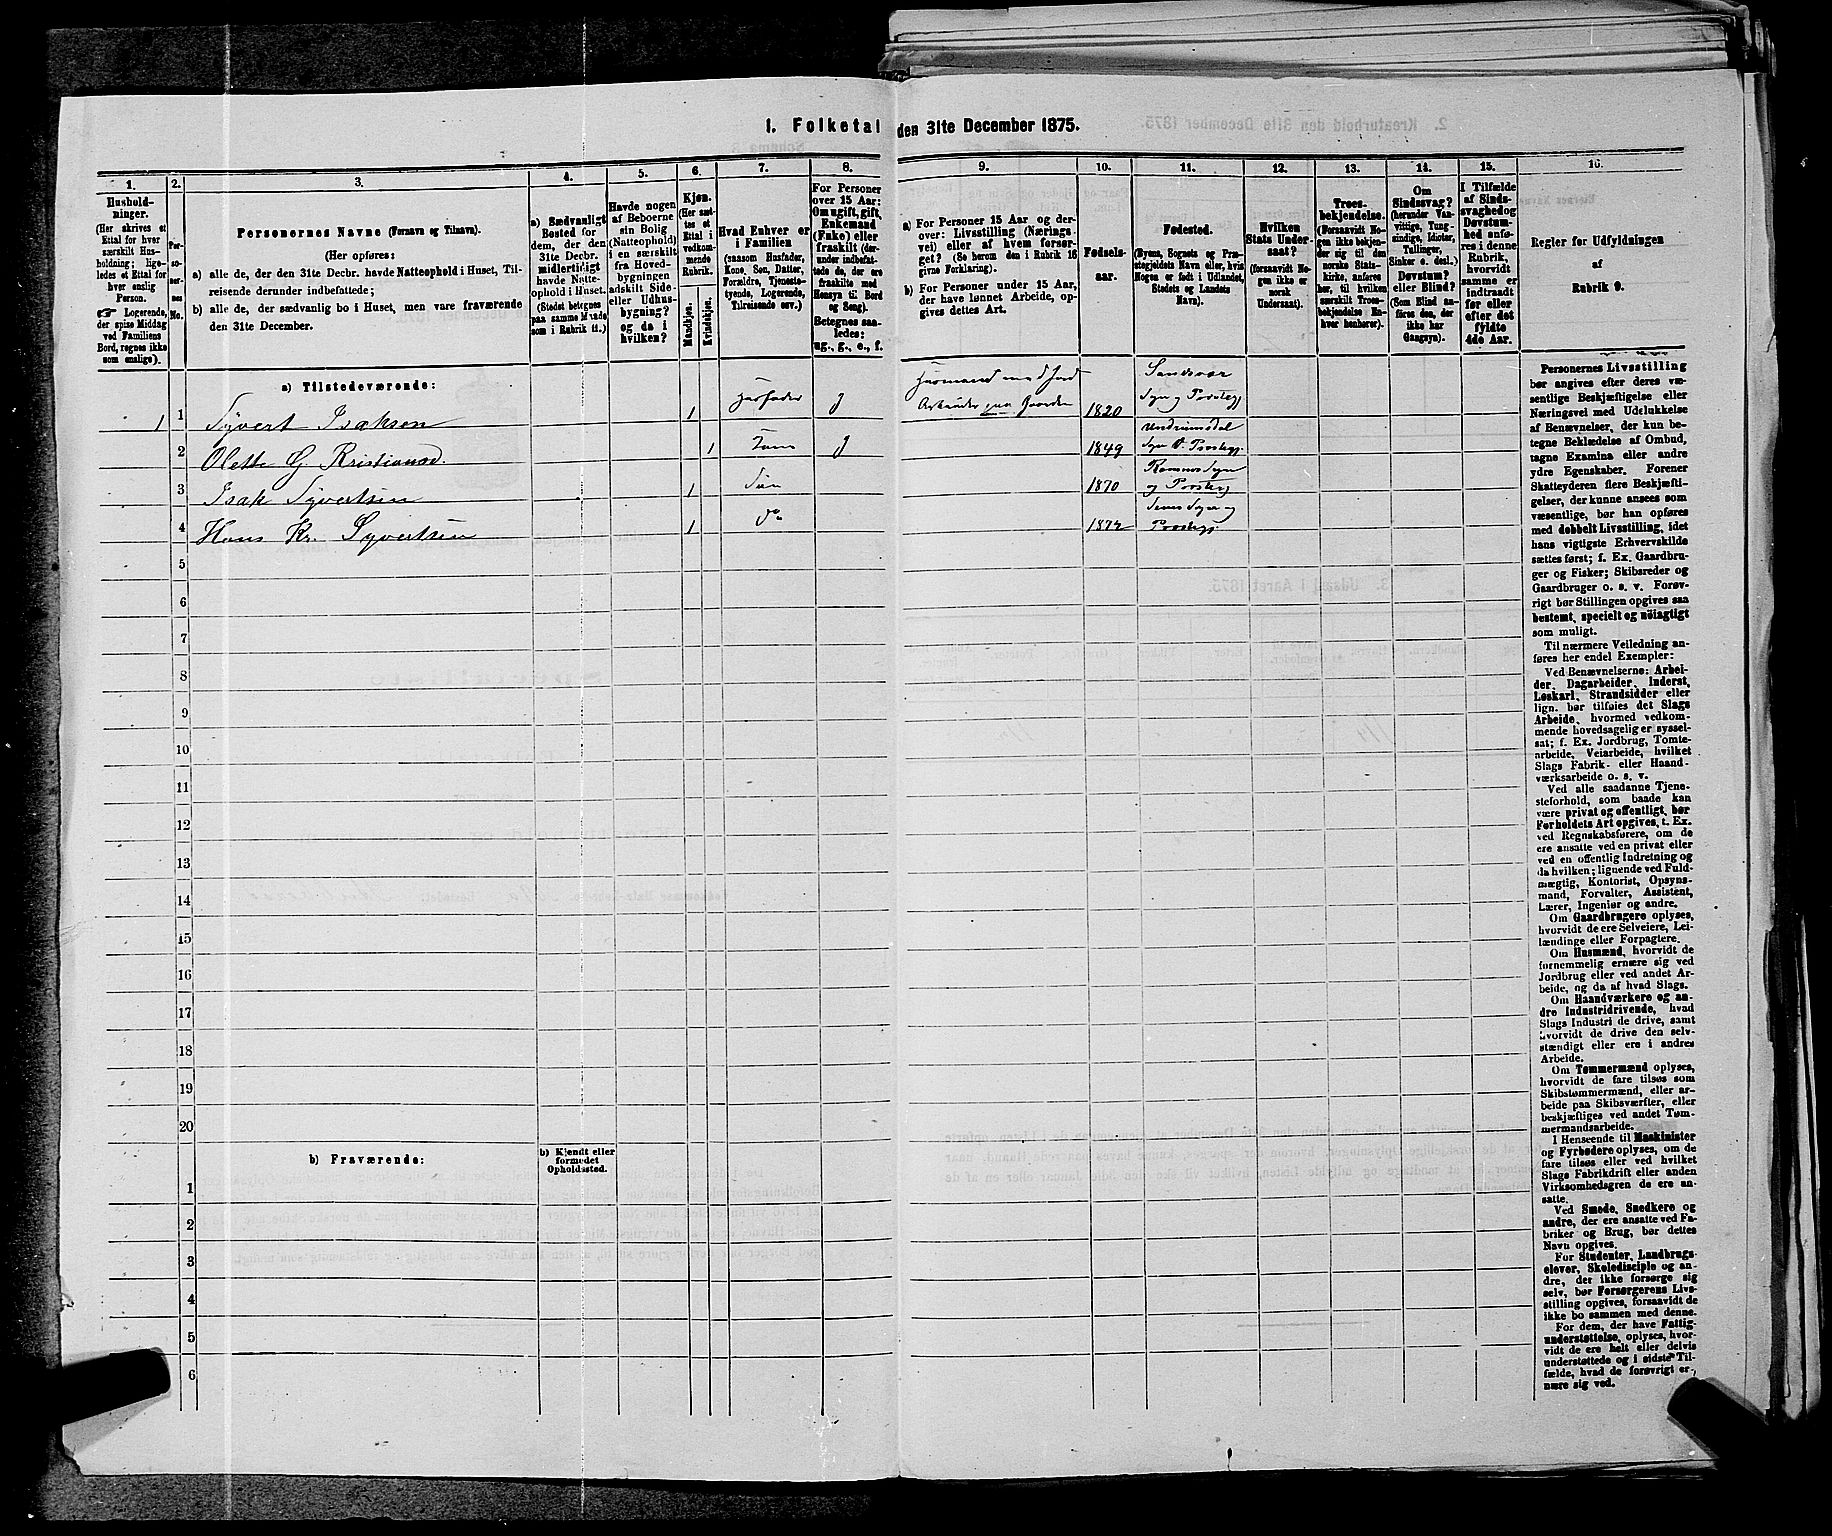 1. Folketal den 31te December 1875.
1.
2.
3.
4.
5.
6.
7.
8.
9.
10.
11.
12.
13.
14.
15.
16.
Hushold-
ninger.
(Her skrives et
Ettal for hver
særskilt Hus-
holdning; lige-
ledes et Ettal for
hver enslig
Person.
☞ Logerende,
der spise Middag
ved Familiens
Bord, regnes ikke
som enslige).
Per-
so-
ner-
nes
No.
Personernes Navne (Fornavn og Tilnavn).
(Her opføres:
a) alle de, der den 31te Decbr. havde Natteophold i Huset, Til-
reisende derunder indbefattede;
b) alle de, der sædvanlig bo i Huset, men vare fraværende
den 31te December.
a) Sædvanligt
Bosted for
dem, der den
31te Decbr.
midlertidigt
havde Natte-
ophold i Huset.
(Stedet betegnes
paa samme Maade
som i Rubrik 11.)
Havde nogen
af Beboerne
sin Bolig
(Natteophold)
i en særskilt
fra Hoved-
bygningen
adskilt Side-
eller Udhus-
bygning?
og da i
hvilken?
Kjøn.
(Her sæt-
tes et
Ettal i
vedkom-
mende
Rubrik.
Mandkjøn.
Kvindekjøn.
Hvad Enhver er
i Familien
(saasom Husfader,
Kone, Søn, Datter,
Forældre, Tjeneste-
tyende, Logerende,
Tilreisende osv.)
For Personer
over 15 Aar:
Om ugift, gift,
Enkemand
(Enke) eller
fraskilt (der-
under indbefat-
tede de, der ere
fraskilte med
Hensyn til Bord
og Seng).
Betegnes saa-
ledes:
ug., g., e., f.
a) For Personer 15 Aar og der-
over: Livsstilling (Nærings-
vei) eller af hvem forsør-
get? (Se herom den i Rubrik 16
givne Forklaring).
b) For Personer under 15 Aar,
der have lønnet Arbeide, op-
gives dettes Art.
Fødsels-
aar.
Fødested.
(Byens, Sognets og Præ-
stegjeldets Navn eller, hvis
Nogen er født i Udlandet,
Stedets og Landets
Navn).
Hvilken
Stats Under-
saat?
(forsaavidt No-
gen ikke er
norsk
Undersaat).
Troes-
bekjendelse.
(Forsaavidt No-
gen ikke bekjen-
der sig til den
norske Stats-
kirke, anføres
her, til hvilken
særskilt Troes-
bekjendelse En-
hver henhører).
Om
Sindssvag?
(herunder Van-
vittige, Tung-
sindige, Idioter,
Tullinger,
Sinker o. desl.)
Døvstum?
eller Blind?
(Som Blind an-
føres den, der
ikke har
Gangsyn).
I Tilfælde
af Sinds-
svaghed og
Døvstum-
hed anfø-
res i denne
Rubrik,
hvorvidt
samme er
indtraadt
før eller
efter det
fyldte
4de Aar.
Regler for Udfyldningen
af
Rubrik 9.
a) Tilstedeværende:
1 1 Syvert Isaksen 1 Husfader g Husmand med Jord
Arbeider paa Gaarden 1820 Sandsvær
Sogn og Præstegj
2 Olette G. Kristiansd. 1 Kone g 1849
3 Isak Syvertsen 1 Søn 1870 Ramnes Sogn
og Præstegj
4 Hans Kr. Syvertsen 1 do 1874 Sogn og
Præstegj
5
6
7
8
9
10
11
12
13
14
15
16
17
18
19
20
b) Fraværende:
b) Kjendt eller
formodet
Opholdssted.
1
2
3
4
5
6
Personernes Livsstilling
bør angives efter deres væ-
sentlige Beskjæftigelse eller
Næringsvei med Udelukkelse
af Benævnelser, der kun be-
tegne Beklædelse af Ombud,
tagne Examina eller andre
ydre Egenskaber. Forener
Skatteyderen flere Beskjæfti-
gelser, der kunne ansees som
væsentlige, bør han opføres
med dobbelt Livsstilling, idet
hans vigtigste Erhvervskilde
sættes først; f. Ex. Gaardbru-
ger og Fisker; Skibsreder og
Gaardbruger o. s. v. Forøv-
rigt bør Stillingen opgives saa
bestemt, specielt og nøiagtigt
som muligt.
Til nærmere Veiledning an-
føres her endel Exempler:
Ved Benævnelserne: Arbei-
der, Dagarbeider, Inderst,
Løskarl, Strandsidder eller
lign. bør tilføies det Slags
Arbeide, hvormed vedkom-
mende hovedsagelig er syssel-
sat; f. Ex. Jordbrug, Tomte-
arbeide, Veiarbeide, hvilket
Slags Fabrik- eller Haand-
værksarbeide o. s. v.
Ved alle saadanne Tjene-
steforhold, som baade kan
være privat og offentligt, bør
Forholdets Art opgives, t. Ex.
ved Regnskabsførere, om de
ere ansatte ved en privat eller
ved en offentlig Indretning og
da hvilken; lignende ved Fuld-
mægtig, Kontorist, Opsyns-
mand, Forvalter, Assistent,
Lærer, Ingeniør og andre.
Om Gaardbrugere oplyses,
hvorvidt de ere Selveiere, Lei-
lændinge eller Forpagtere.
Om Husmænd, hvorvidt de
fornemmelig ernære sig ved
Jordbrug eller ved andet Ar-
beide, og da af hvad Slags.
Om Haandværkere og an-
dre Industridrivende, hvad
Slags Industri de drive, samt
hvorvidt de drive den selv-
stændigt eller ere i andres
Arbeide.
Om Tømmermænd oplyses,
hvorvidt de fare tilsøs som
Skibstømmermænd, eller ar-
beide paa Skibsværfter, eller
beskjæftiges ved andet Tøm-
mermandsarbeide.
I Henseende til Maskinister
og Fyrbødere oplyses, om de
fare tilsøs eller ved hvilket
Slags Fabrikdrift eller anden
Virksomhedsgren de ere an-
satte.
Ved Smede, Snedkere og
andre, der ere ansatte ved Fa-
briker og Brug, bør dettes
Navn opgives.
For Studenter, Landbrugs-
elever, Skoledisciple og an-
dre, der ikke forsørge sig
selv, bør Forsørgerens Livs-
stilling opgives, forsaavidt de
ikke bo sammen med denne.
For dem, der have Fattig-
understøttelse, oplyses, hvor-
vidt de ere helt eller delvis
understøttede og i sidste Til-
fælde, hvad de forøvrigt er-
nære sig ved.